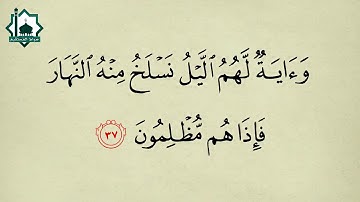 وَءَايَةٌ لَّهُمُ الَّيْلُ نَسْلَخُ مِنْهُ النَّهَارَ
فَإِذَا هُم مُّظْلِمُونَ ٣٧